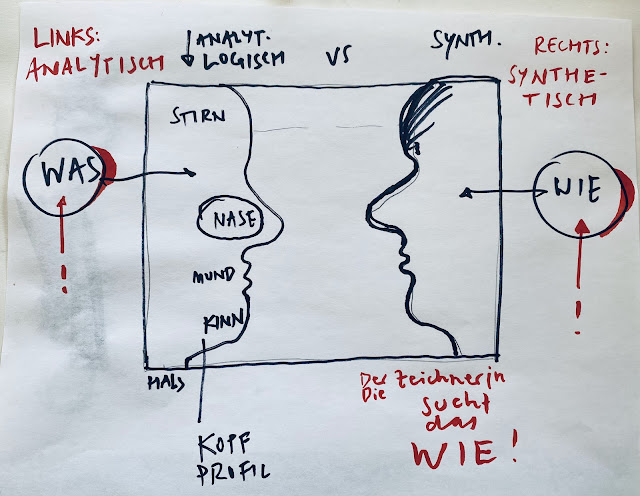 LINKS:
ANALYTISCH
ANALYT.
LOGISCH
VS
SYNTH.
RECHTS:
SYNTHE-
TISCH
STIRN
WAS
NASE
WIE
MUND
KINN
HALS
KOPF
PROFIL
!
!
Der Zeichner|in
Die
sucht
das
WIE!